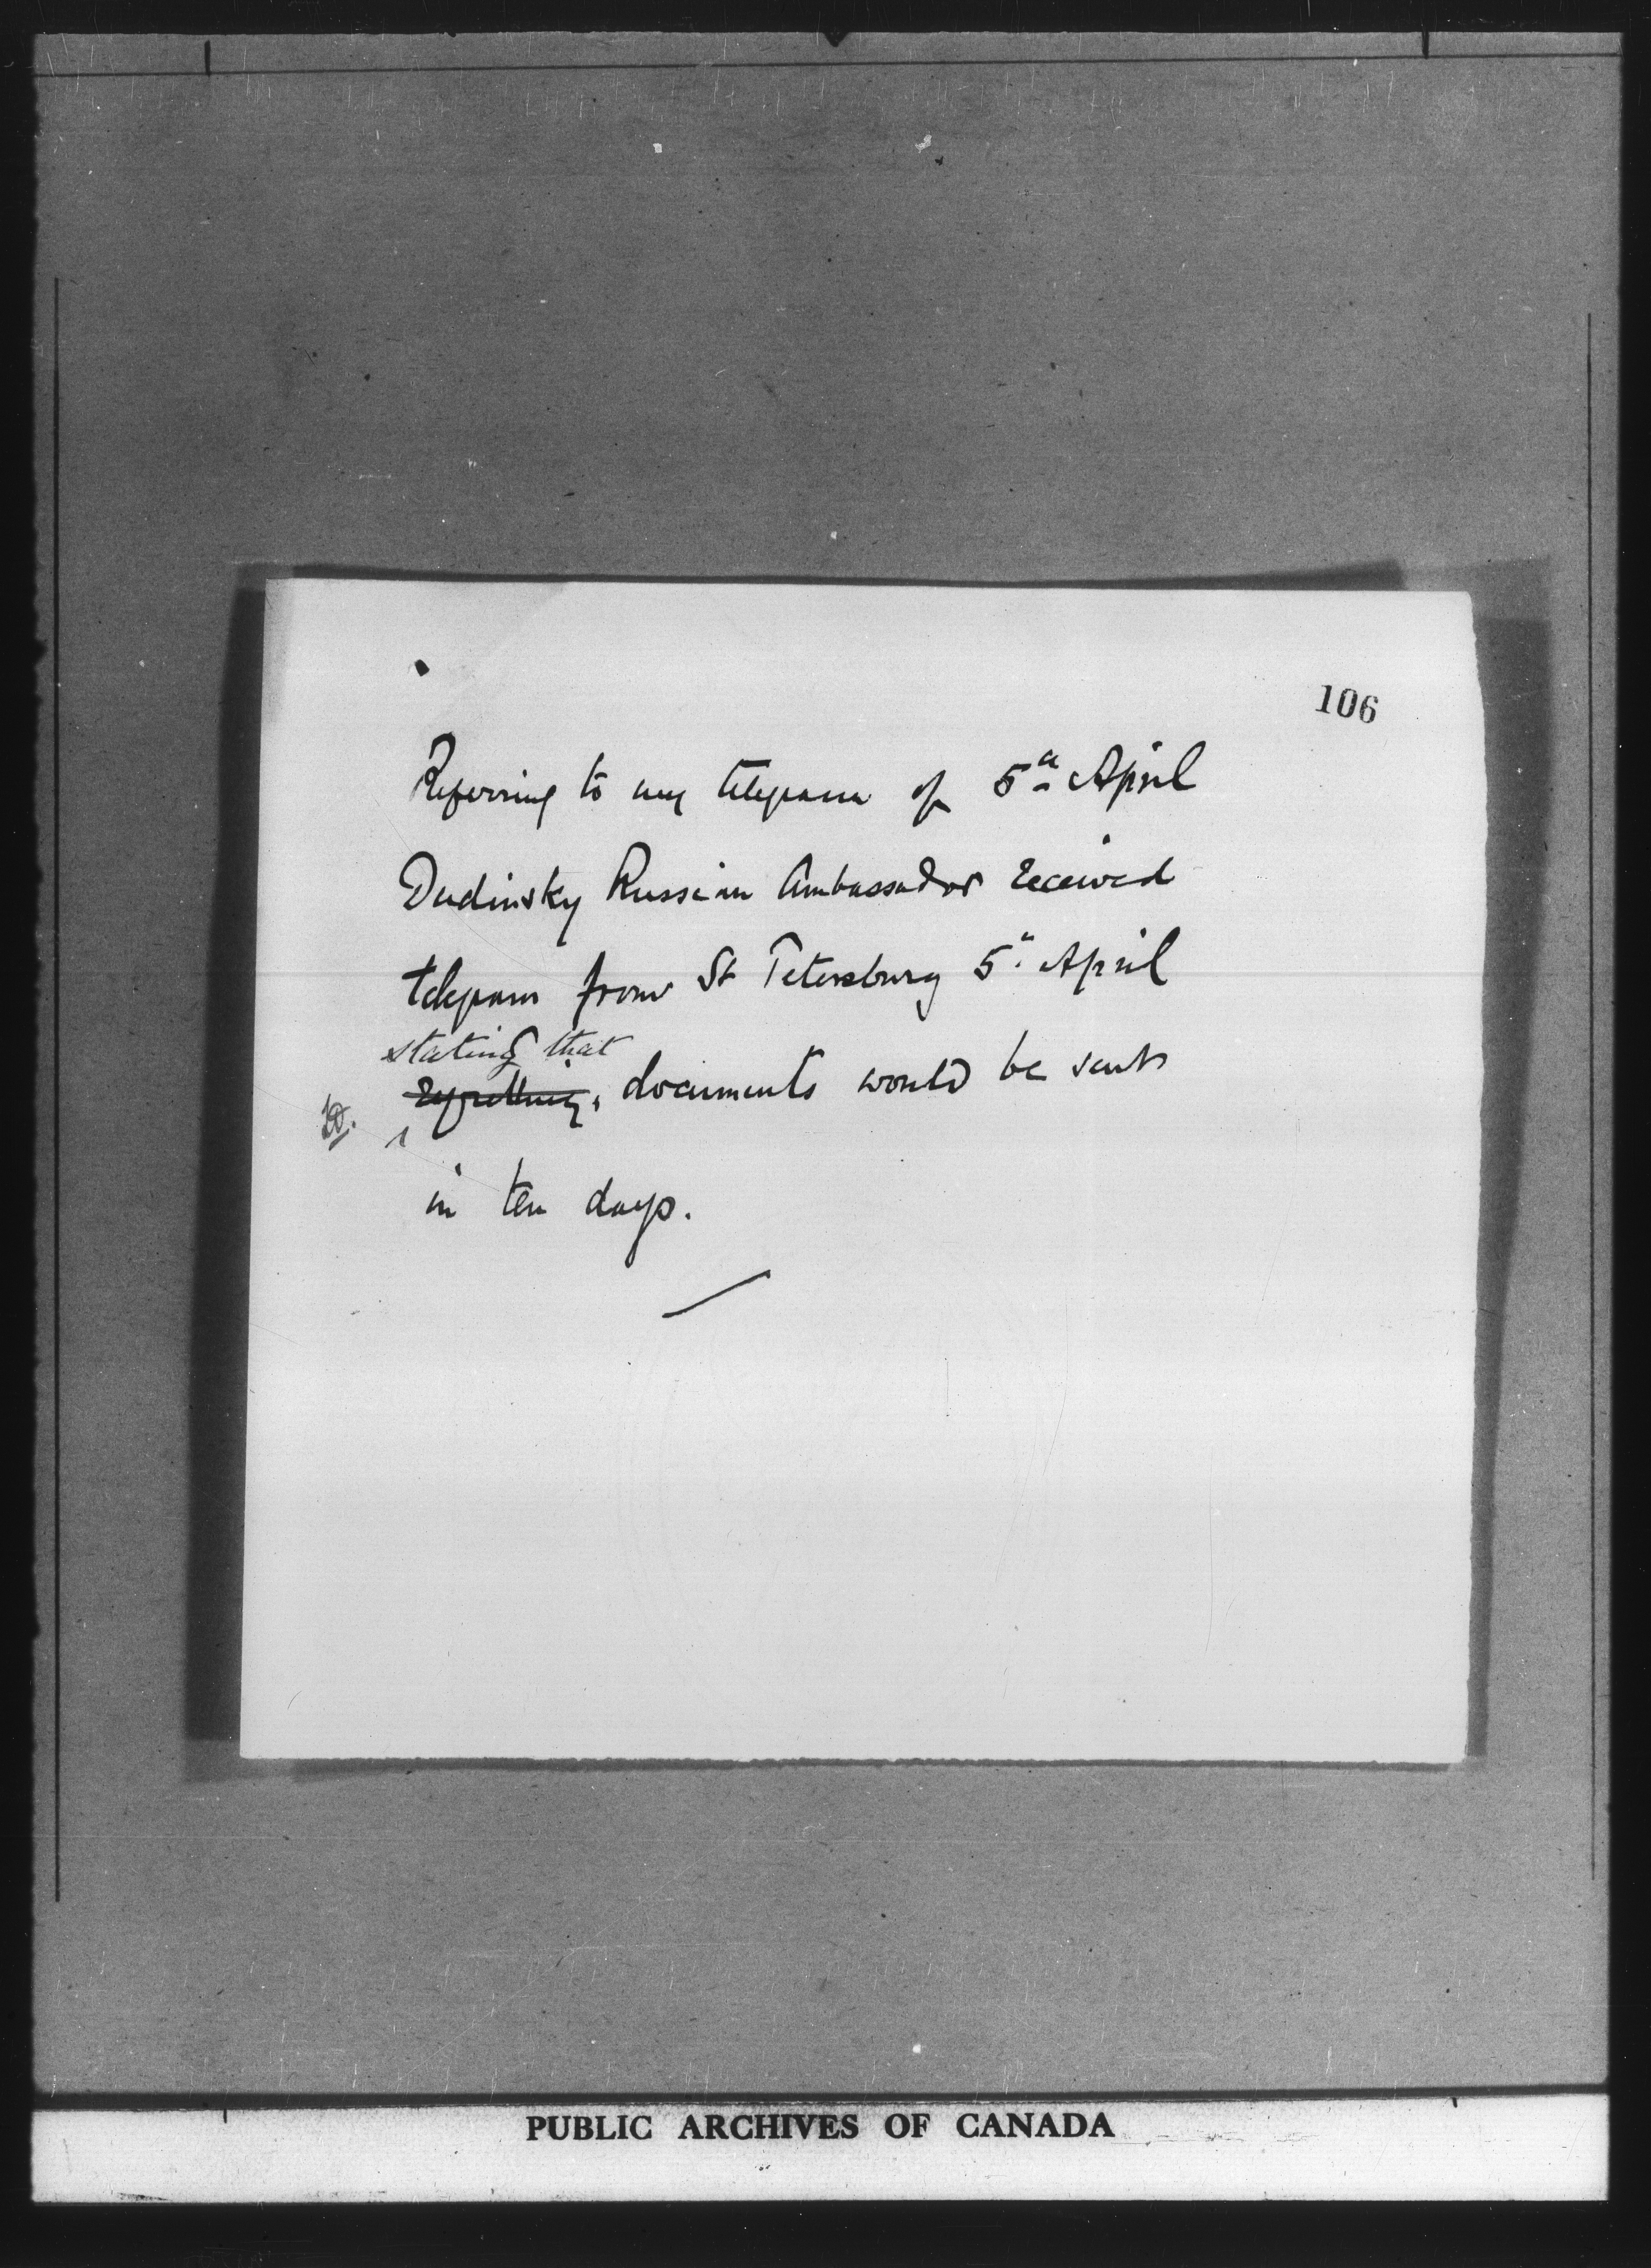 106
Referring to my telegram of 5th April
Dudinsky Russian Ambassador received
telegram from St Petersburg 5th April
stating that
documents would be sent
in ten days.
PUBLIC ARCHIVES OF CANADA